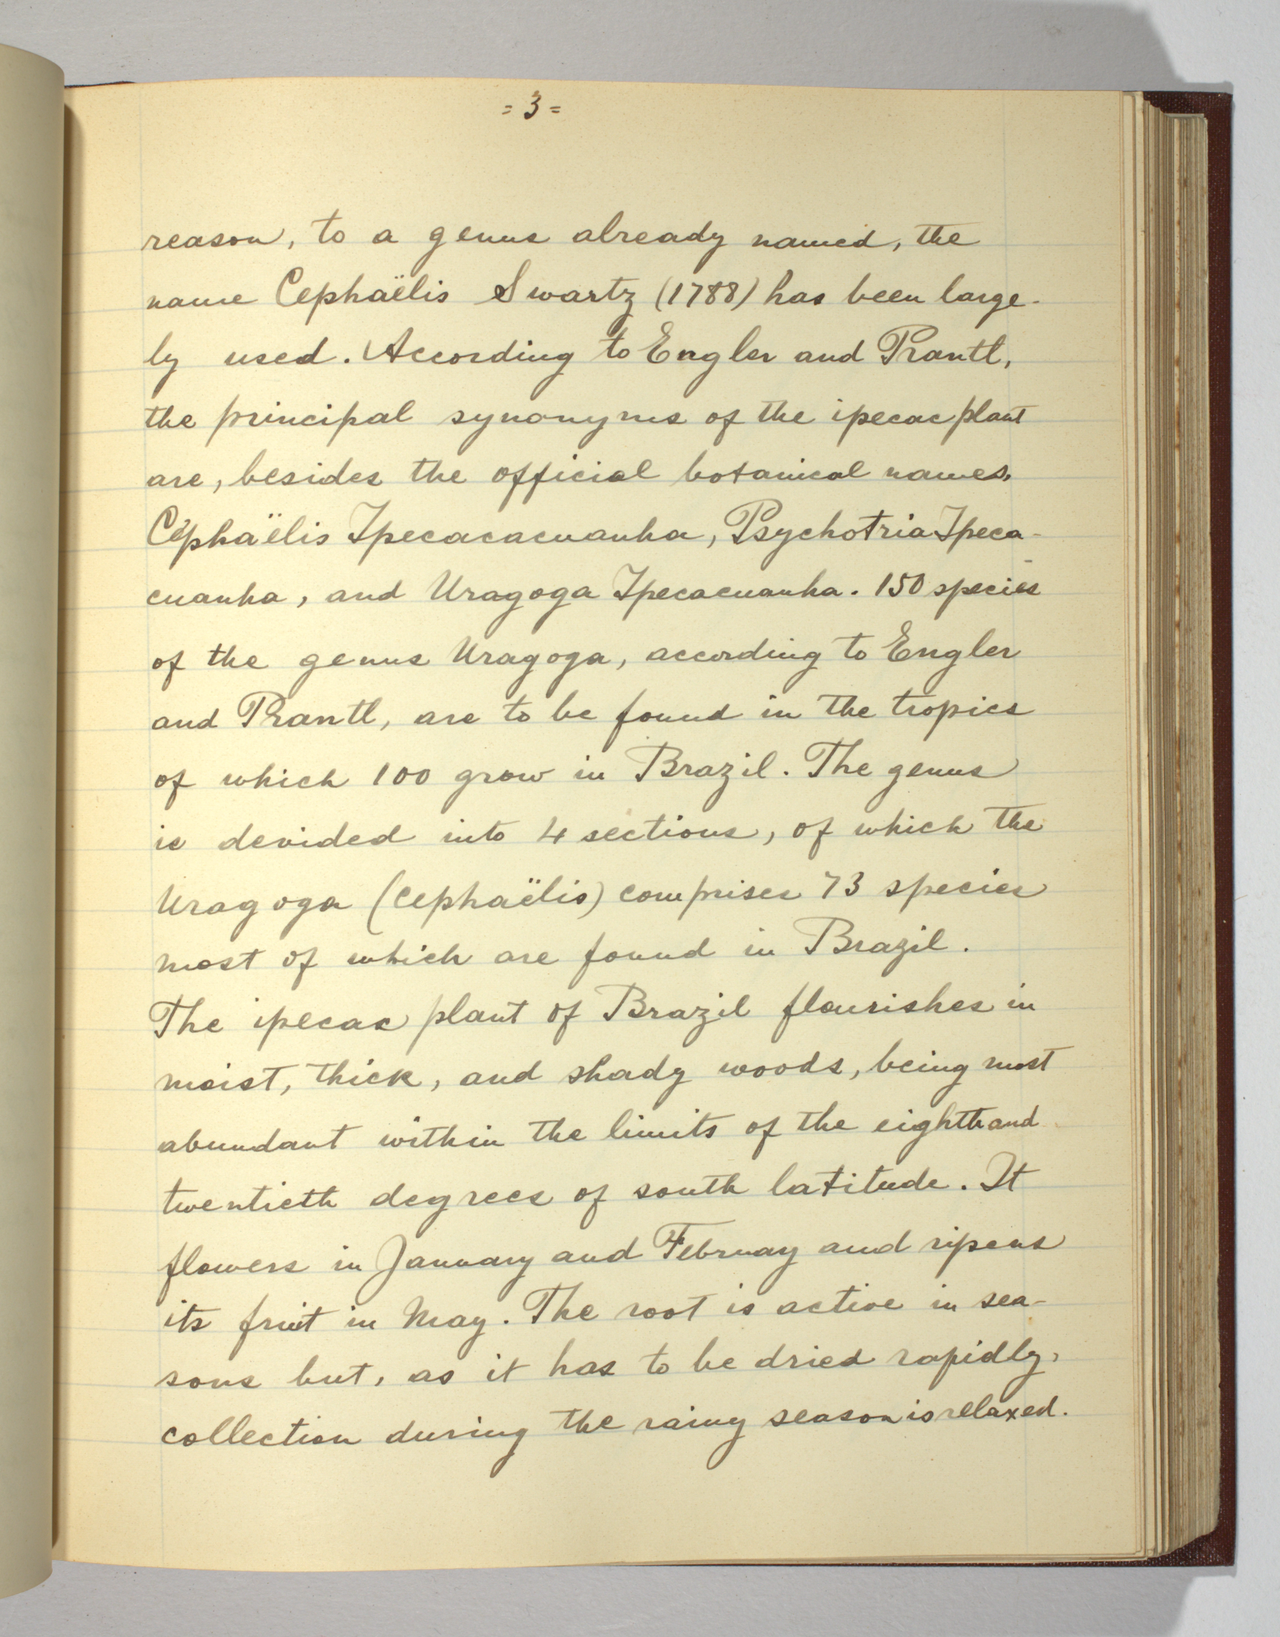 = 3 =
reason, to a genus already named, the
name Cephaëlis Swartz (1788) has been large-
ly used. According to Engler and Prantl,
the principal synonyms of the ipecac plant
are, besides the official botanical names,
Cephaëlis Ipecacacuanha, Psychotria Ipeca-
cuanha, and Uragoga Ipecacuanha. 150 species
of the genus Uragoga, according to Engler
and Prantl, are to be found in the tropics
of which 100 grow in Brazil. The genus
is devided into 4 sections, of which the
Uragoga (Cephaëlis) comprises 73 species
most of which are found in Brazil.
The ipecac plant of Brazil flourishes in
moist, thick, and shady woods, being most
abundant within the limits of the eighth and
twentieth degrees of south latitude. It
flowers in January and Februay and ripens
its fruit in May. The root is active in sea-
sons but, as it has to be dried rapidly,
collection during the rainy season is relaxed.